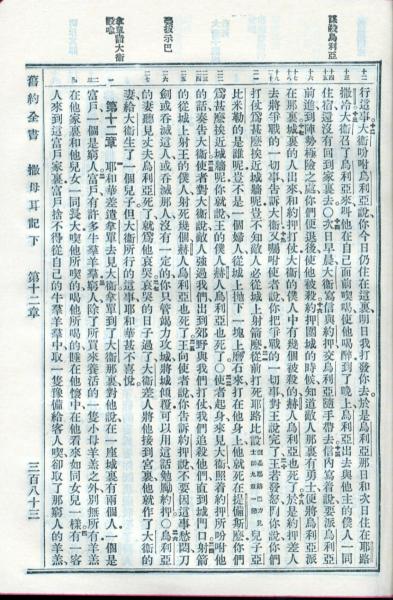 謀殺烏利亞
娶拔示巴
拿單諭大衛設喻
行這事大衛吩咐烏利亞說你今日仍住在這裏明日我打發你去於是烏利亞那日和次日住在耶路
撒冷大衛召了烏利亞來叫他在自己面前喫喝使他喝醉了晚上烏利亞出去與他主的僕人一同
住宿還沒有回到家裏去○次日早晨大衛寫信與約押交烏利亞隨手帶去信內寫着說要派烏利亞
前進到陣勢極險之處你們便退後使他被殺約押圍城的時候知道敵人那裏有勇士便將烏利亞
在那裏城裏的人出來和約押打仗大衛的僕人中有幾個被殺的赫人烏利亞也死了於是約押差人
去將爭戰的一切事告訴大衛又囑咐使者說你把爭戰的一切事對王說完了王若發怒問你說你們
打仗為甚麼挨近城牆呢豈不知敵人必從城上射箭麼從前打死耶路比設
兒子亞
比米勒的是誰呢豈不是一個婦人從城上抛下一塊上磨石來打在他身上他就死在提備斯麼你們
為甚麼挨近城牆呢你就說王的僕人赫人烏利亞也死了○使者起身來見大衛照着約押所吩咐他
的話奏告大衛使者對大衛說敵人強過我們出到郊野與我們打仗我們追殺他們直到城門口射箭
的從城上射王的僕人射死幾個赫人烏利亞也死了王向使者說你告訴約押說不要因這事愁悶刀
劍或吞滅這人或吞滅那人沒有一定的你只管竭力攻城將城傾覆可以用這話勉勵約押○烏利亞
的妻聽見丈夫烏利亞死了就為他哀哭哀哭的日子過了大衛差人將他接到宮裏他就作了大衛的
妻給大衛生了一個兒子但大衛所行的這事耶和華甚不喜悅
第十二章 耶和華差遣拿單去見大衛拿單到了大衛那裏對他說在一座城裏有兩個人一個是
富戶一個是窮人富戶有許多牛羣羊羣窮人除了所買來養活的一隻小母羊羔之外別無所有羊羔
在他家裏和他兒女一同長大喫他所喫的喝他所喝的睡在他懷中在他看來如同女兒一樣有一客
人來到這富戶家裏富戶捨不得從自己的牛羣羊羣中取一隻豫備給客人喫卻取了那窮人的羊羔
舊約全書 撒母耳記下 第十二章 三百八十三